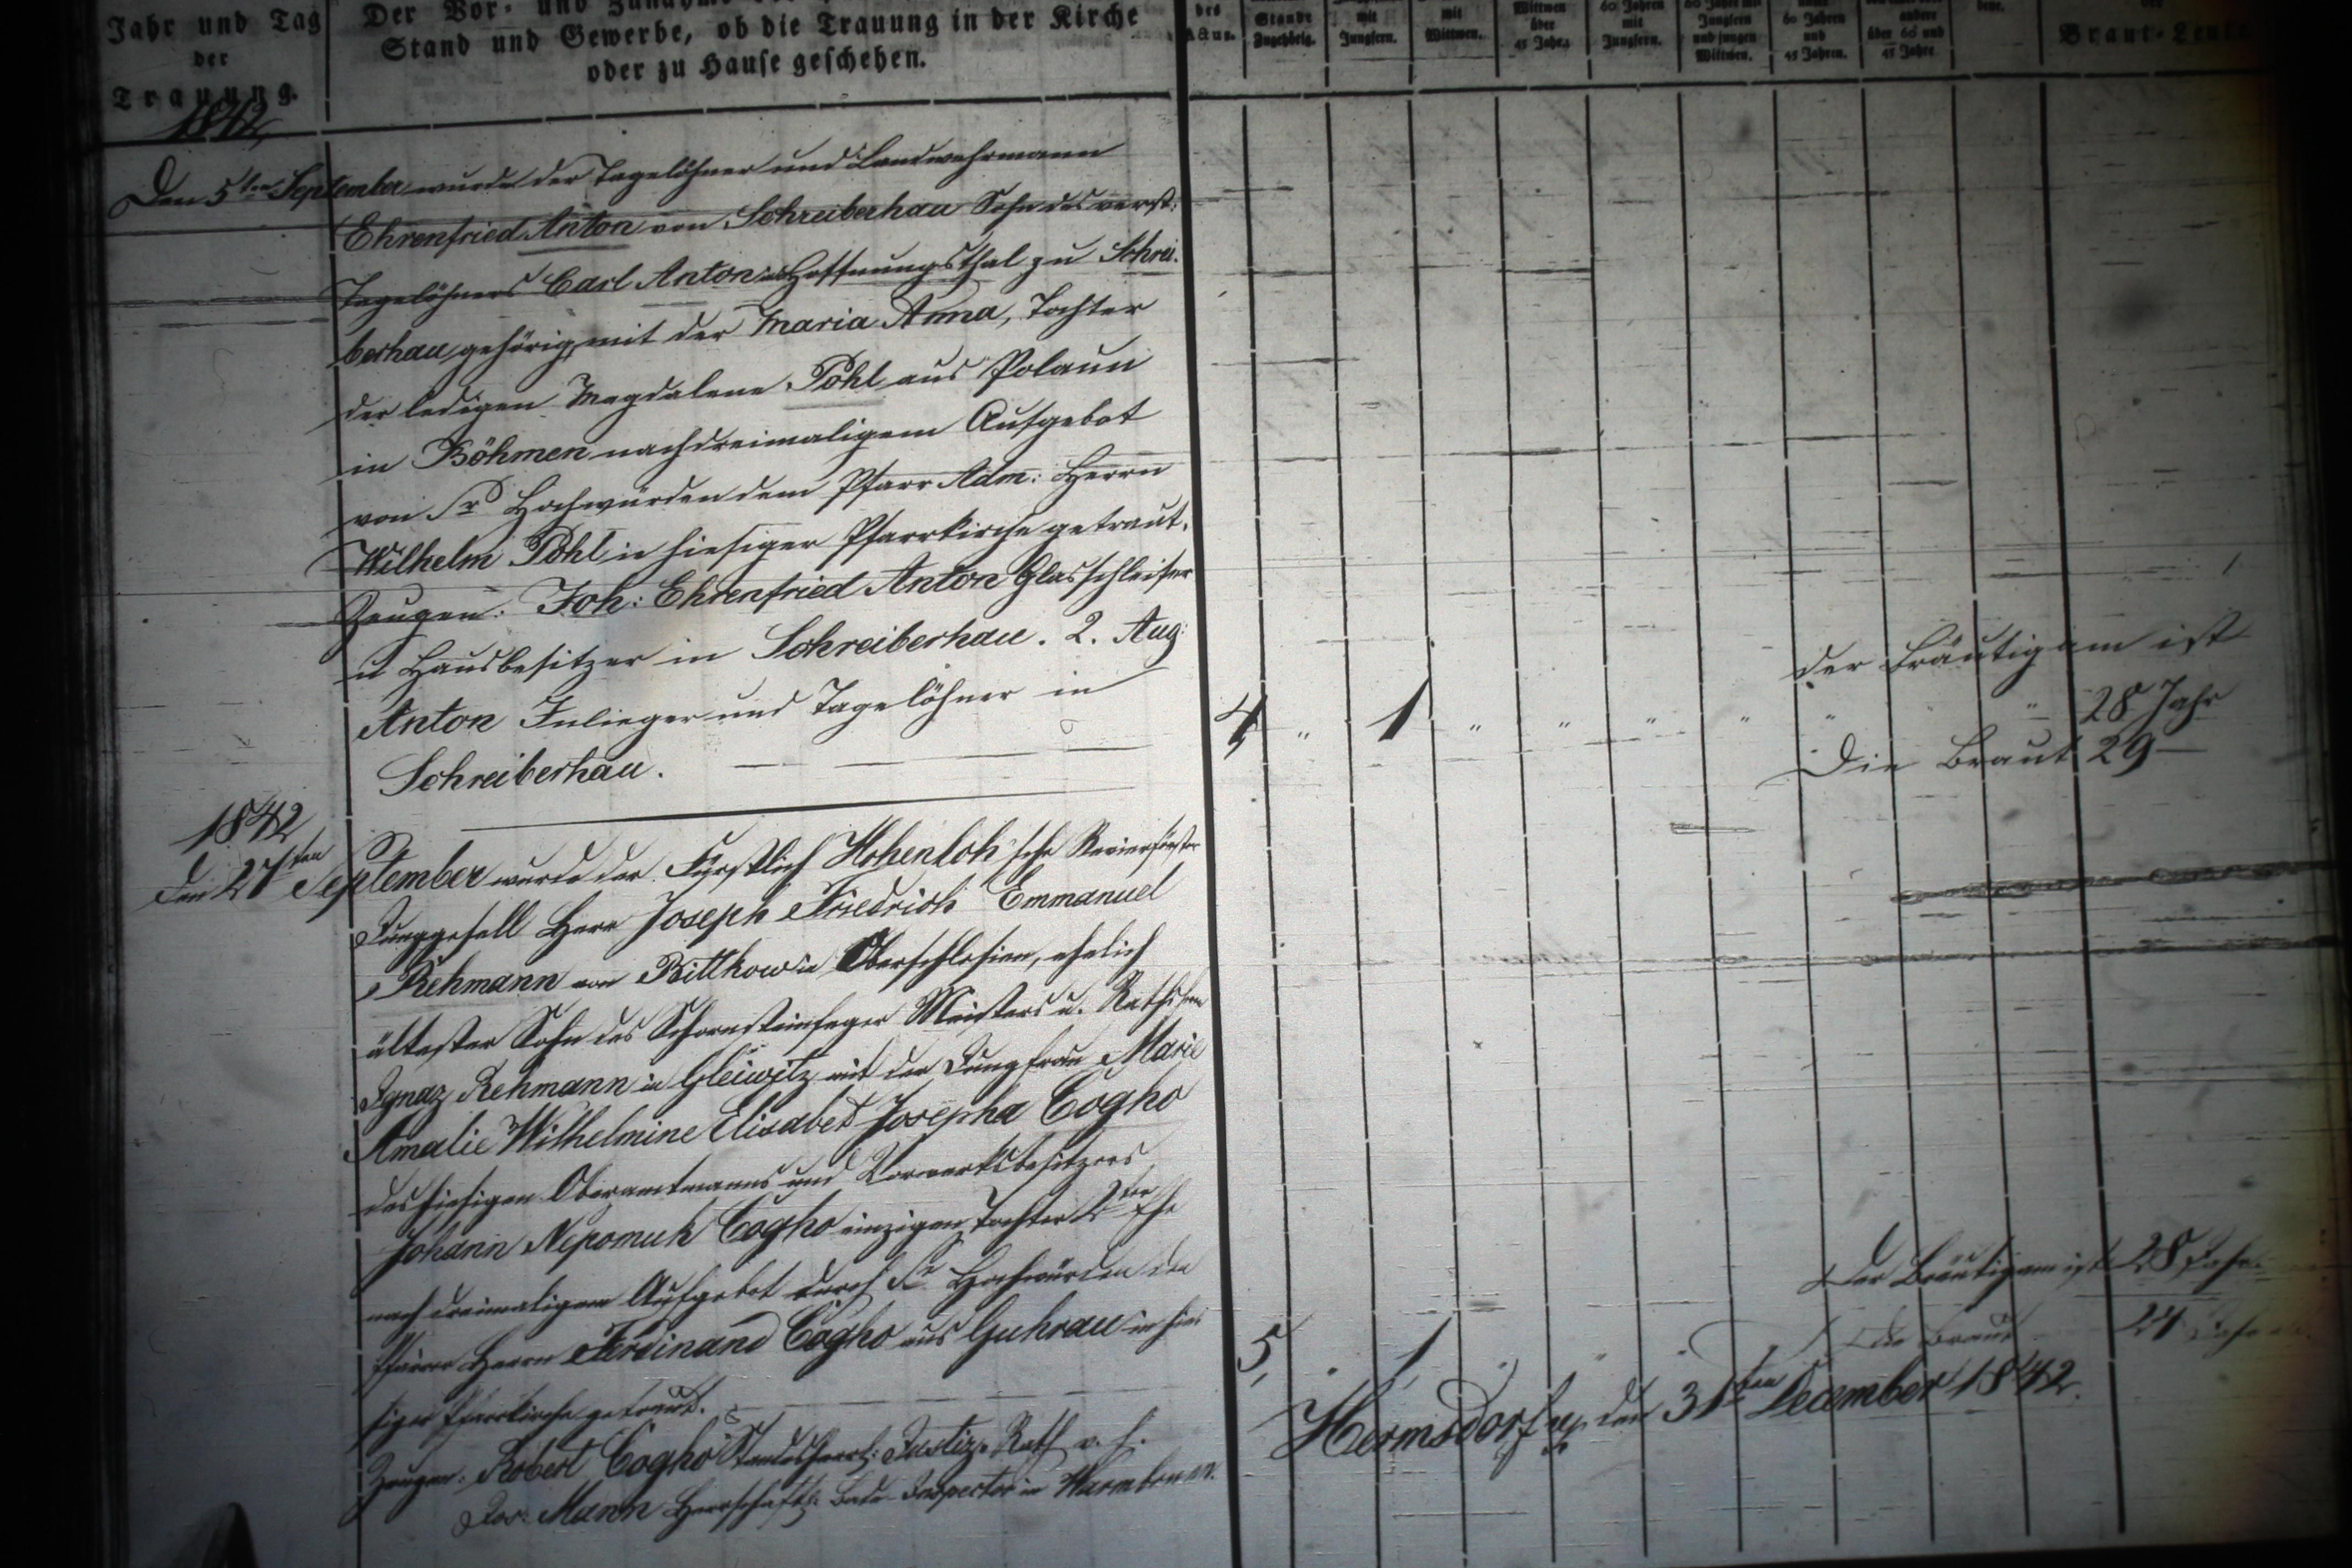 Jahr und Tag
der
Trauung.
Der Vor- und Zunahme
Stand und Gewerbe, ob die Trauung in der Kirche
oder zu Hause geschehen.
des
Actus.
Stande
Zugehörig.
mit
Jungfern.
mit
Wittwen.
Wittwen
über
45 Jahr.
60 Jahren
mit
Jungfern.
60 Jahre mit
Jungfern
und jungen
Wittwen.
60 Jahren
und
45 Jahren.
andere
über 60 und
45 Jahre
der
Braut-Leute
1842
Den 5ten September wurde der Tagelöhner und Landwehrmann
Ehrenfried Anton von Schreiberhau Sohn des verst:
Tagelöhners Carl Anton in Hoffnungsthal zu Schrei-
berhau gehörig, mit der Maria Anna, Tochter
der ledigen Magdalena Pohl aus Polaun
in Böhmen nach dreimaligem Aufgebot
von Sr Hochwürden dem Pfarr Adm: Herrn
Wilhelm Pohl in hiesiger Pfarrkirche getraut.
Zeugen: Joh: Ehrenfried Anton Glasschleifer
u Hausbesitzer in Schreiberhau. 2. Aug:
Anton Inlieger und Tagelöhner in
Schreiberhau.
4 " 1 " " " " " "
der Bräutigam ist
28 Jahr
Die Braut 29 —
1842
Den 27ten September wurde der Fürstlich Hohenloh'sche Revierförster
Junggesell Herr Joseph Friedrich Emmanuel
Rehmann von Bittkow in Oberschlesien, ehelich
ältester Sohn des Schornsteinfeger Meisters u.
Ignaz Rehmann in Gleiwitz mit der Jungfrau Marie
Amalie Wilhelmine Elisabet Josepha Cogho
des hiesigen Oberamtmanns und Vorwerksbesitzers
Johann Nepomuk Cogho einzigen Tochter 2ter Ehe
nach dreimaligem Aufgebot durch Sr Hochwürden den
Pfarrer Herrn Ferdinand Cogho aus Guhrau in hie-
siger Pfarrkirche getraut.
Zeugen: Robert Cogho Standesherrl: Justiz-Rath v. h.
Jos: Mann Herrschaftl: Bade-Inspector in Warmbrunn.
5, " 1
Der Bräutigam ist 28 Jahr.
die Braut
Hermsdorf den 31ten December 1842.